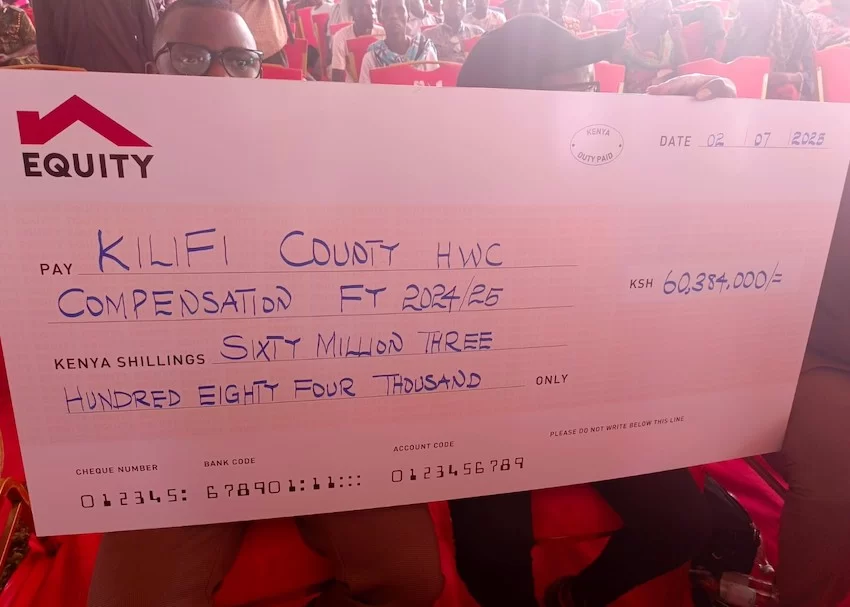 EQUITY
KENYA
DUTY PAID
DATE 02 / 07 / 2025
PAY KILIFI COUNTY HWC
COMPENSATION FY 2024/25
KSH 60,384,000/=
KENYA SHILLINGS SIXTY MILLION THREE
HUNDRED EIGHTY FOUR THOUSAND ONLY
PLEASE DO NOT WRITE BELOW THIS LINE
CHEQUE NUMBER BANK CODE ACCOUNT CODE
012345: 678901:11::: 0123456789